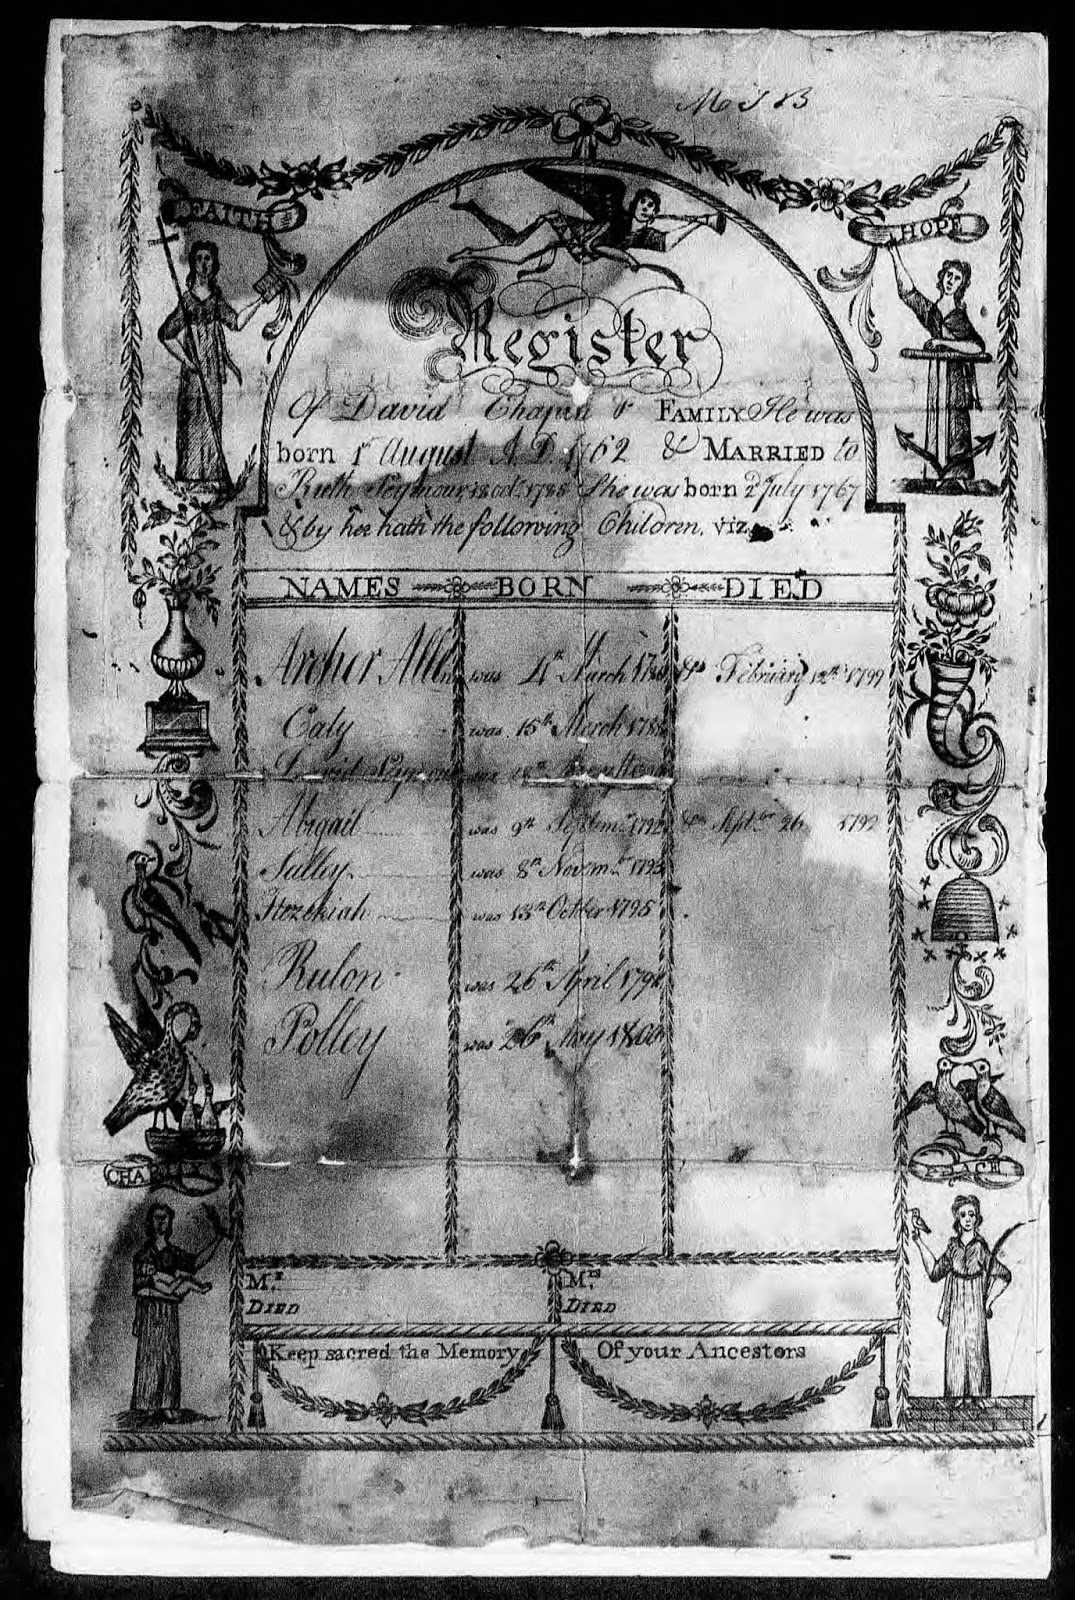 M S B
FAITH
HOPE
Register
Of David Chapin & FAMILY He was
born 1st August A.D. 1762 & MARRIED to
Ruth Seymour 18 Oct. 1785 She was born 2d July 1767
& by her hath the following Children, viz.
NAMES BORN DIED
Archer Allen was 4th March February 12th 1799
Caty was 15th March
David was 18th
Abigail was 9th Septemr. 1792 Septbr 26 1792
Sally was 8th Novmr. 1793
Hezekiah was 13th Octber 1795
Rulon was 26th April
Polley was 26th May 1800
CHARITY
PEACE
Mr. Mrs.
DIED DIED
Keep sacred the Memory Of your Ancestors